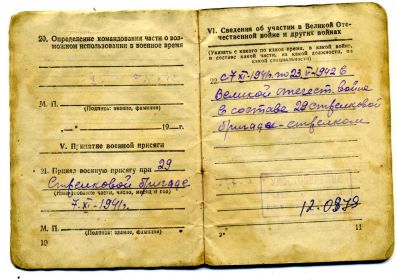 20. Определение командования части о воз-
можном использовании в военное время
М. П.
(Подпись: звание, фамилия)
19 г.
V. Принятие военной присяги
21. Принял военную присягу при 29
Стрелковой бригаде
(Наименование части, число, месяц и год)
7.XI-1941г.
М. П.
(Подпись: звание, фамилия)
10
VI. Сведения об участии в Великой Оте-
чественной войне и других войнах
(Указать с какого по какое время, в какой войне,
в составе какой части, на какой должности, по
какой специальности)
22. с 7 XI-1941г. по 23.V-1942 в
Великой отечест. войне
в составе 29 стрелковой
бригады - стрелком
2*
11